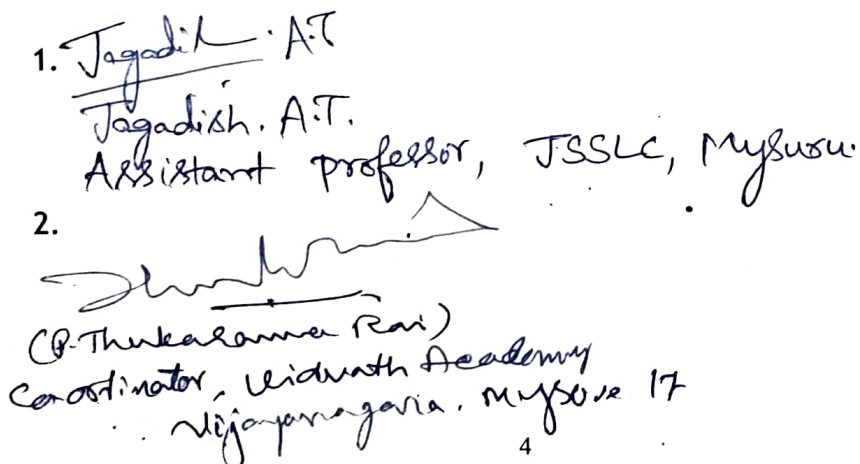 1. Jagadish. A.T
Jagadish. A.T.
Assistant professor, JSSLC, Mysuru.
2.
(P. Thukarama Rai)
Co-ordinator, Vidvath Academy
Vijayanagara. Mysore 17
4